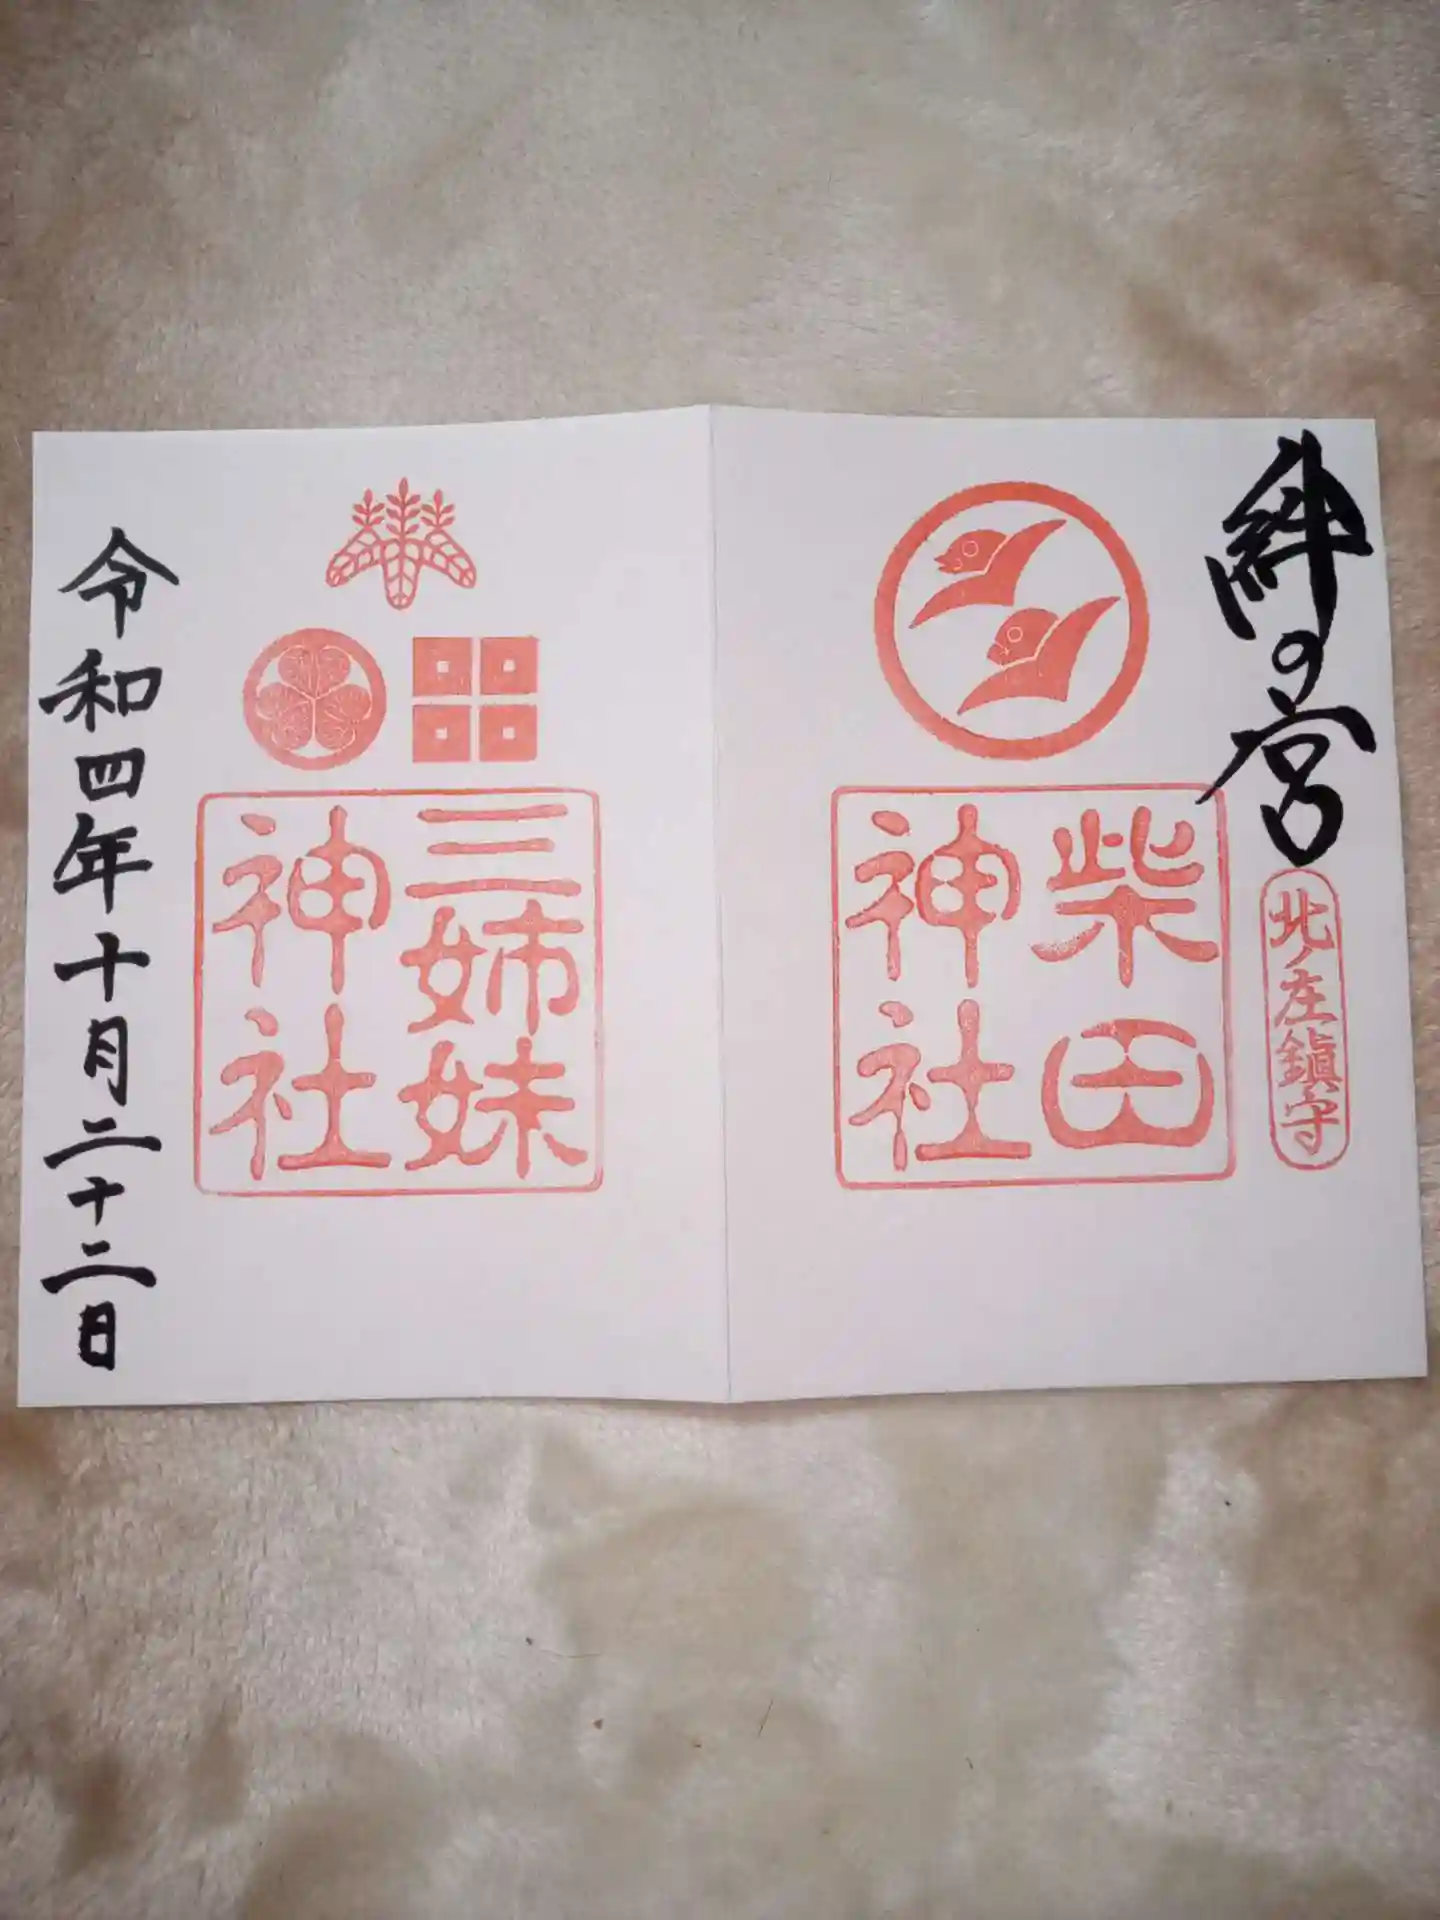 絆の宮
北ノ庄鎮守
柴田
神社
三姉妹
神社
令和四年十月二十二日